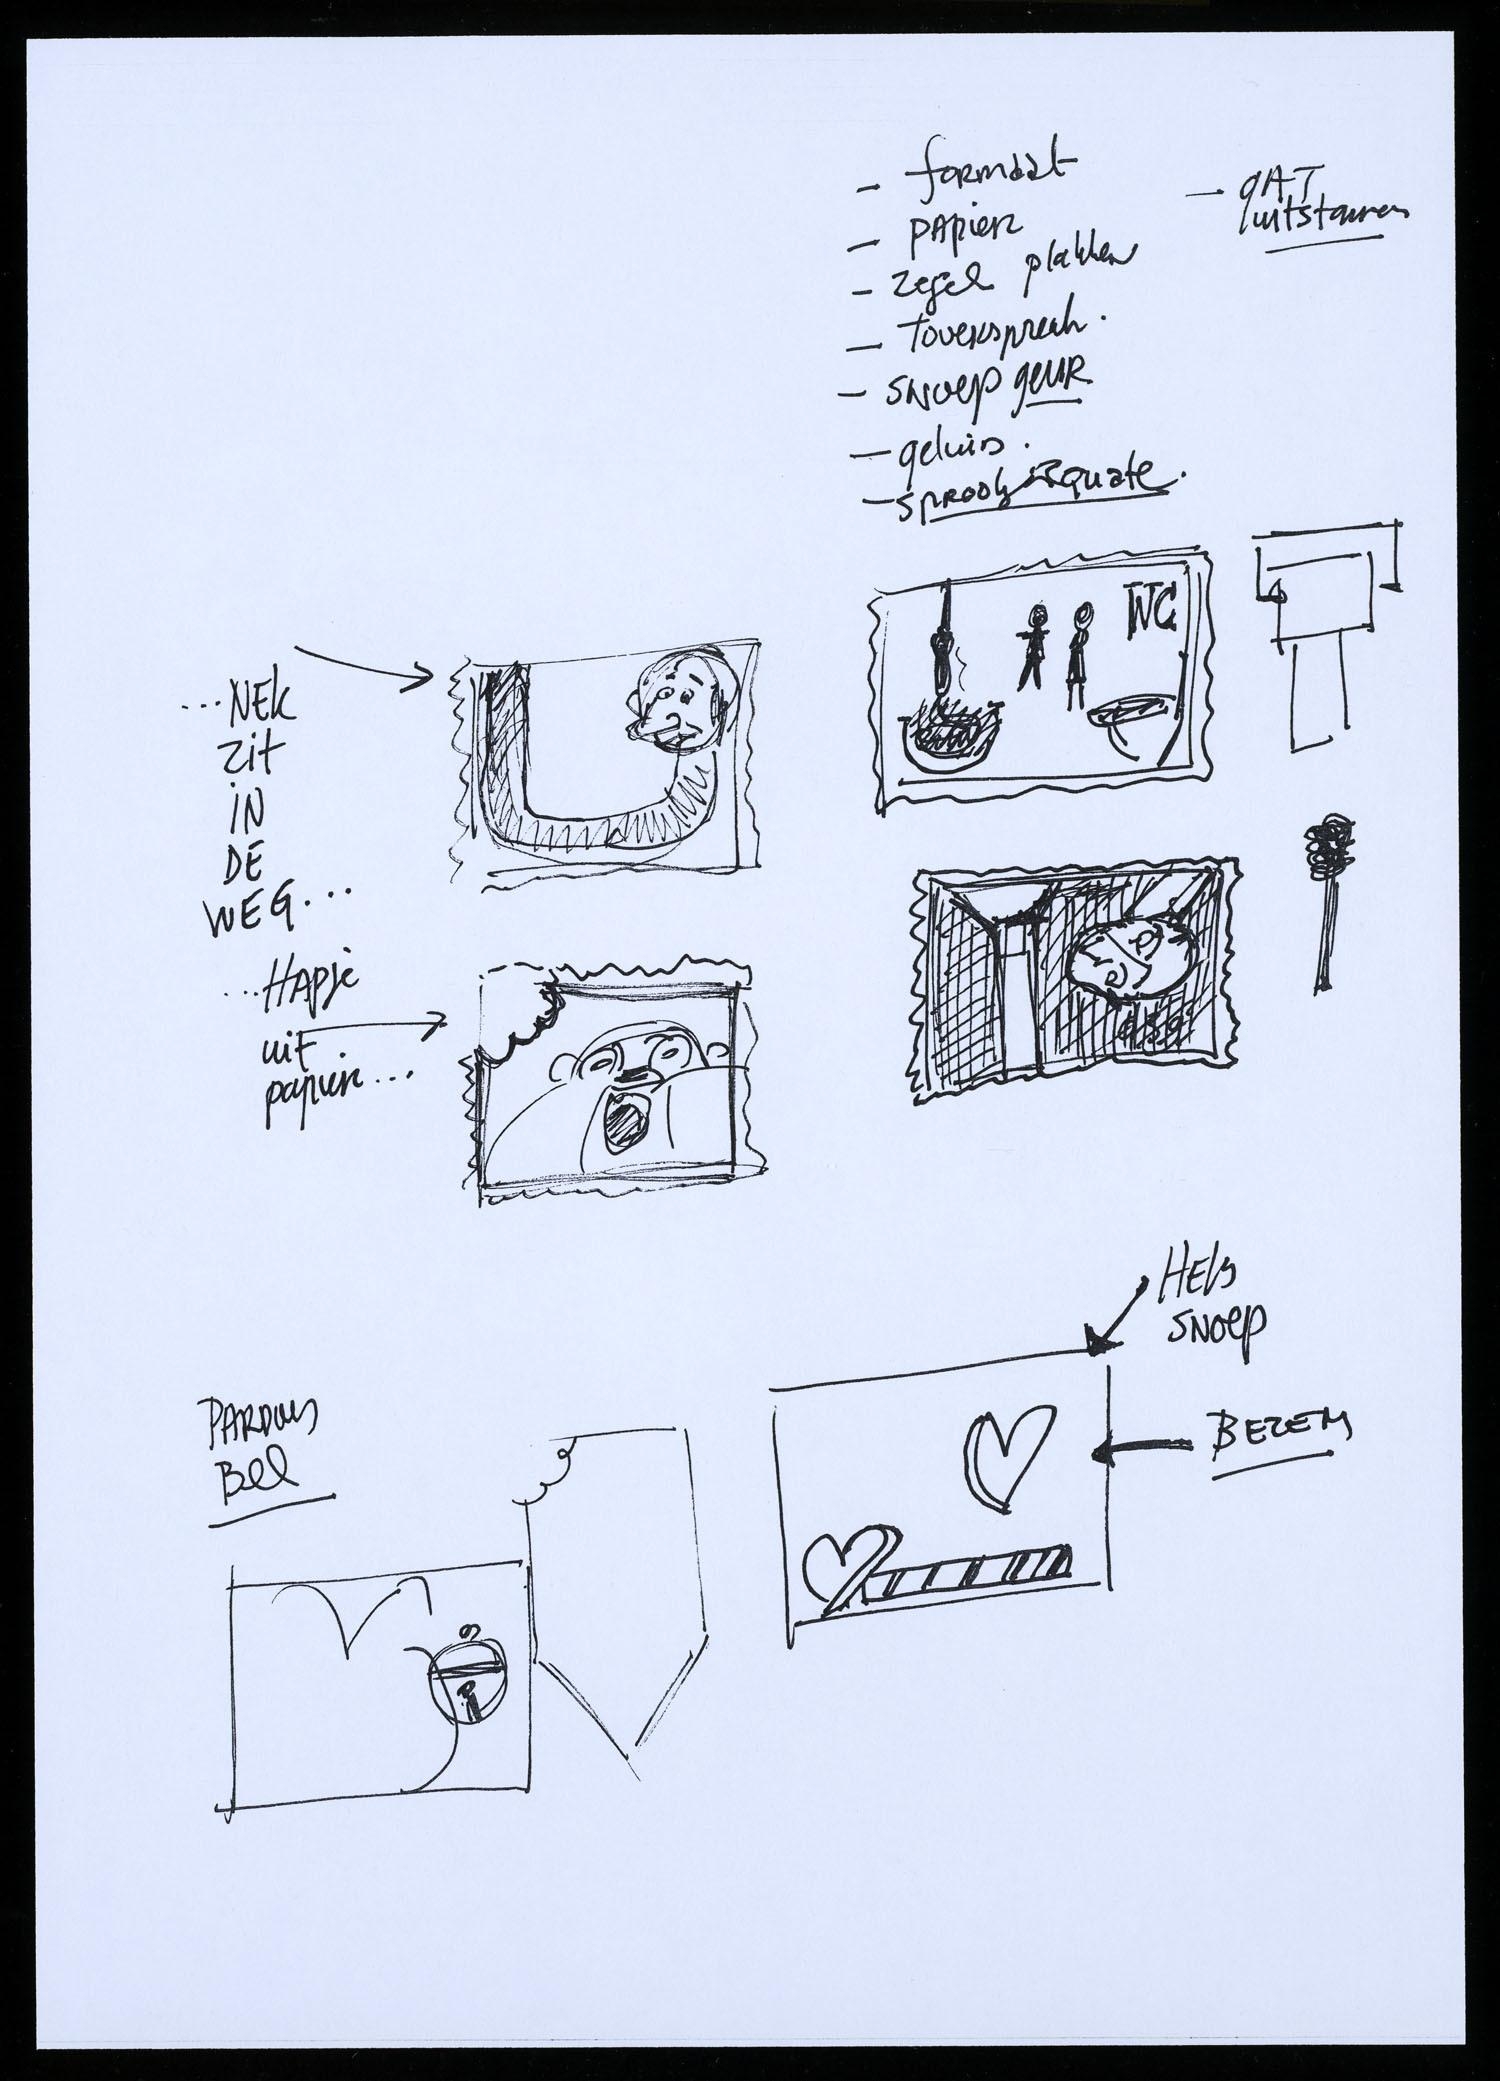 - formaat
- papier
- zegel plakken
- toverspreuk.
- snoep geur
- geluid.
- sprookjes quote.
- gAT
uitstansen
WC
...NEK
Zit
iN
DE
WEG...
...HApje
uit
papier...
HEks
snoep
BEZEM
PARDOES
Bel